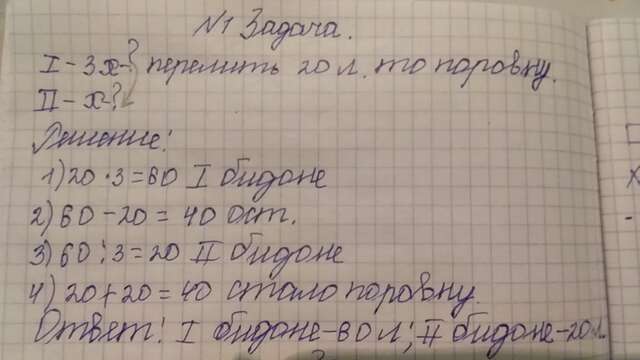 N1 Задача.
I - 3x } перелить 20 л. то поровну.
II - x }
Решение:
1) 20 · 3 = 60 I бидоне
2) 60 - 20 = 40 ост.
3) 60 : 3 = 20 II бидоне
4) 20 + 20 = 40 стало поровну.
Ответ: I бидоне - 60 л; II бидоне - 20 л.